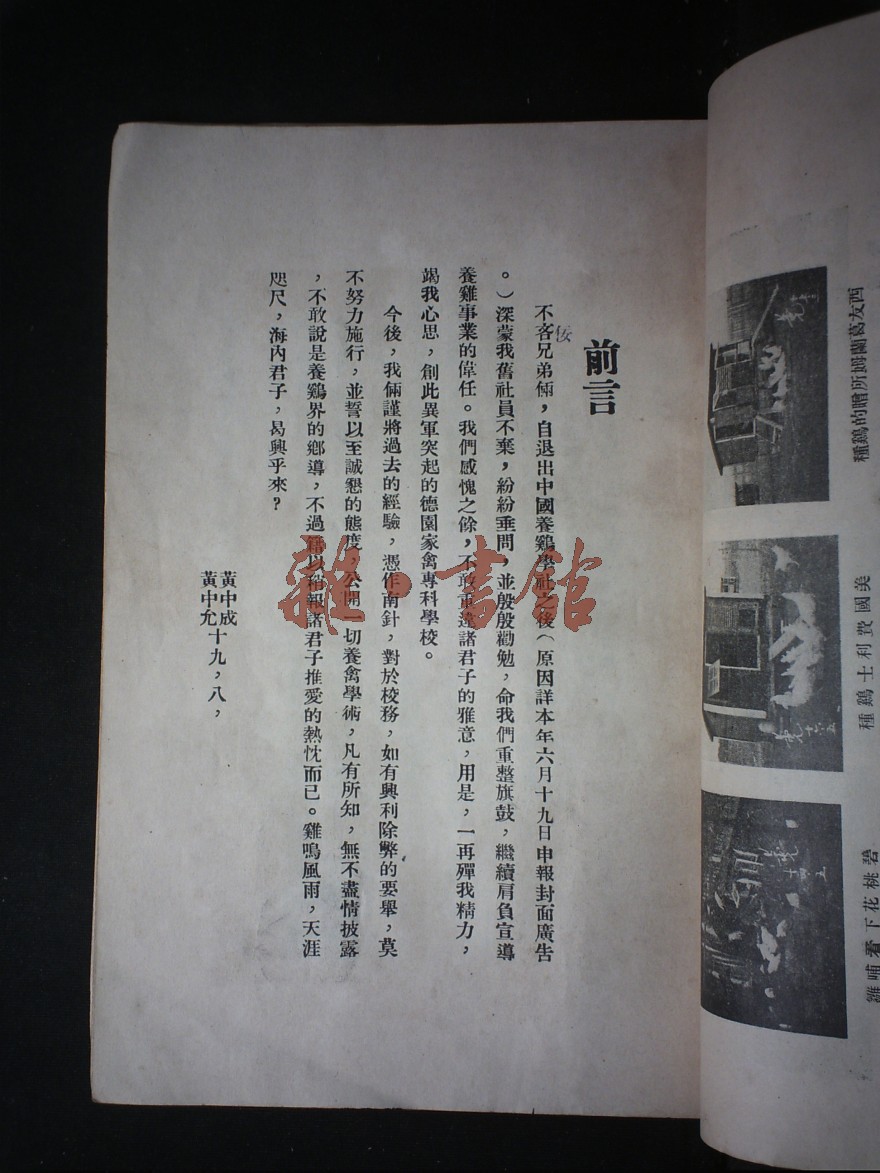 西友葛蘭姆所贈的鷄種
美國費利士鷄種
碧桃花下看哺雛
前言
不吝兄弟倆，自退出中國養鷄學社之後（原因詳本年六月十九日申報封面廣告
佞
。）深蒙我舊社員不棄，紛紛垂問，並殷殷勸勉，命我們重整旗鼓，繼續肩負宣導
養雞事業的偉任。我們感愧之餘，不敢重違諸君子的雅意，用是，一再殫我精力，
竭我心思，創此異軍突起的德園家禽專科學校。
今後，我倆謹將過去的經驗，憑作南針，對於校務，如有興利除弊的要舉，莫
不努力施行，並誓以至誠懇的態度，公開一切養禽學術，凡有所知，無不盡情披露
，不敢說是養鷄界的鄉導，不過藉以稍報諸君子推愛的熱忱而已。雞鳴風雨，天涯
咫尺，海內君子，曷興乎來？
黃中成
黃中允十九，八，
雜·書館